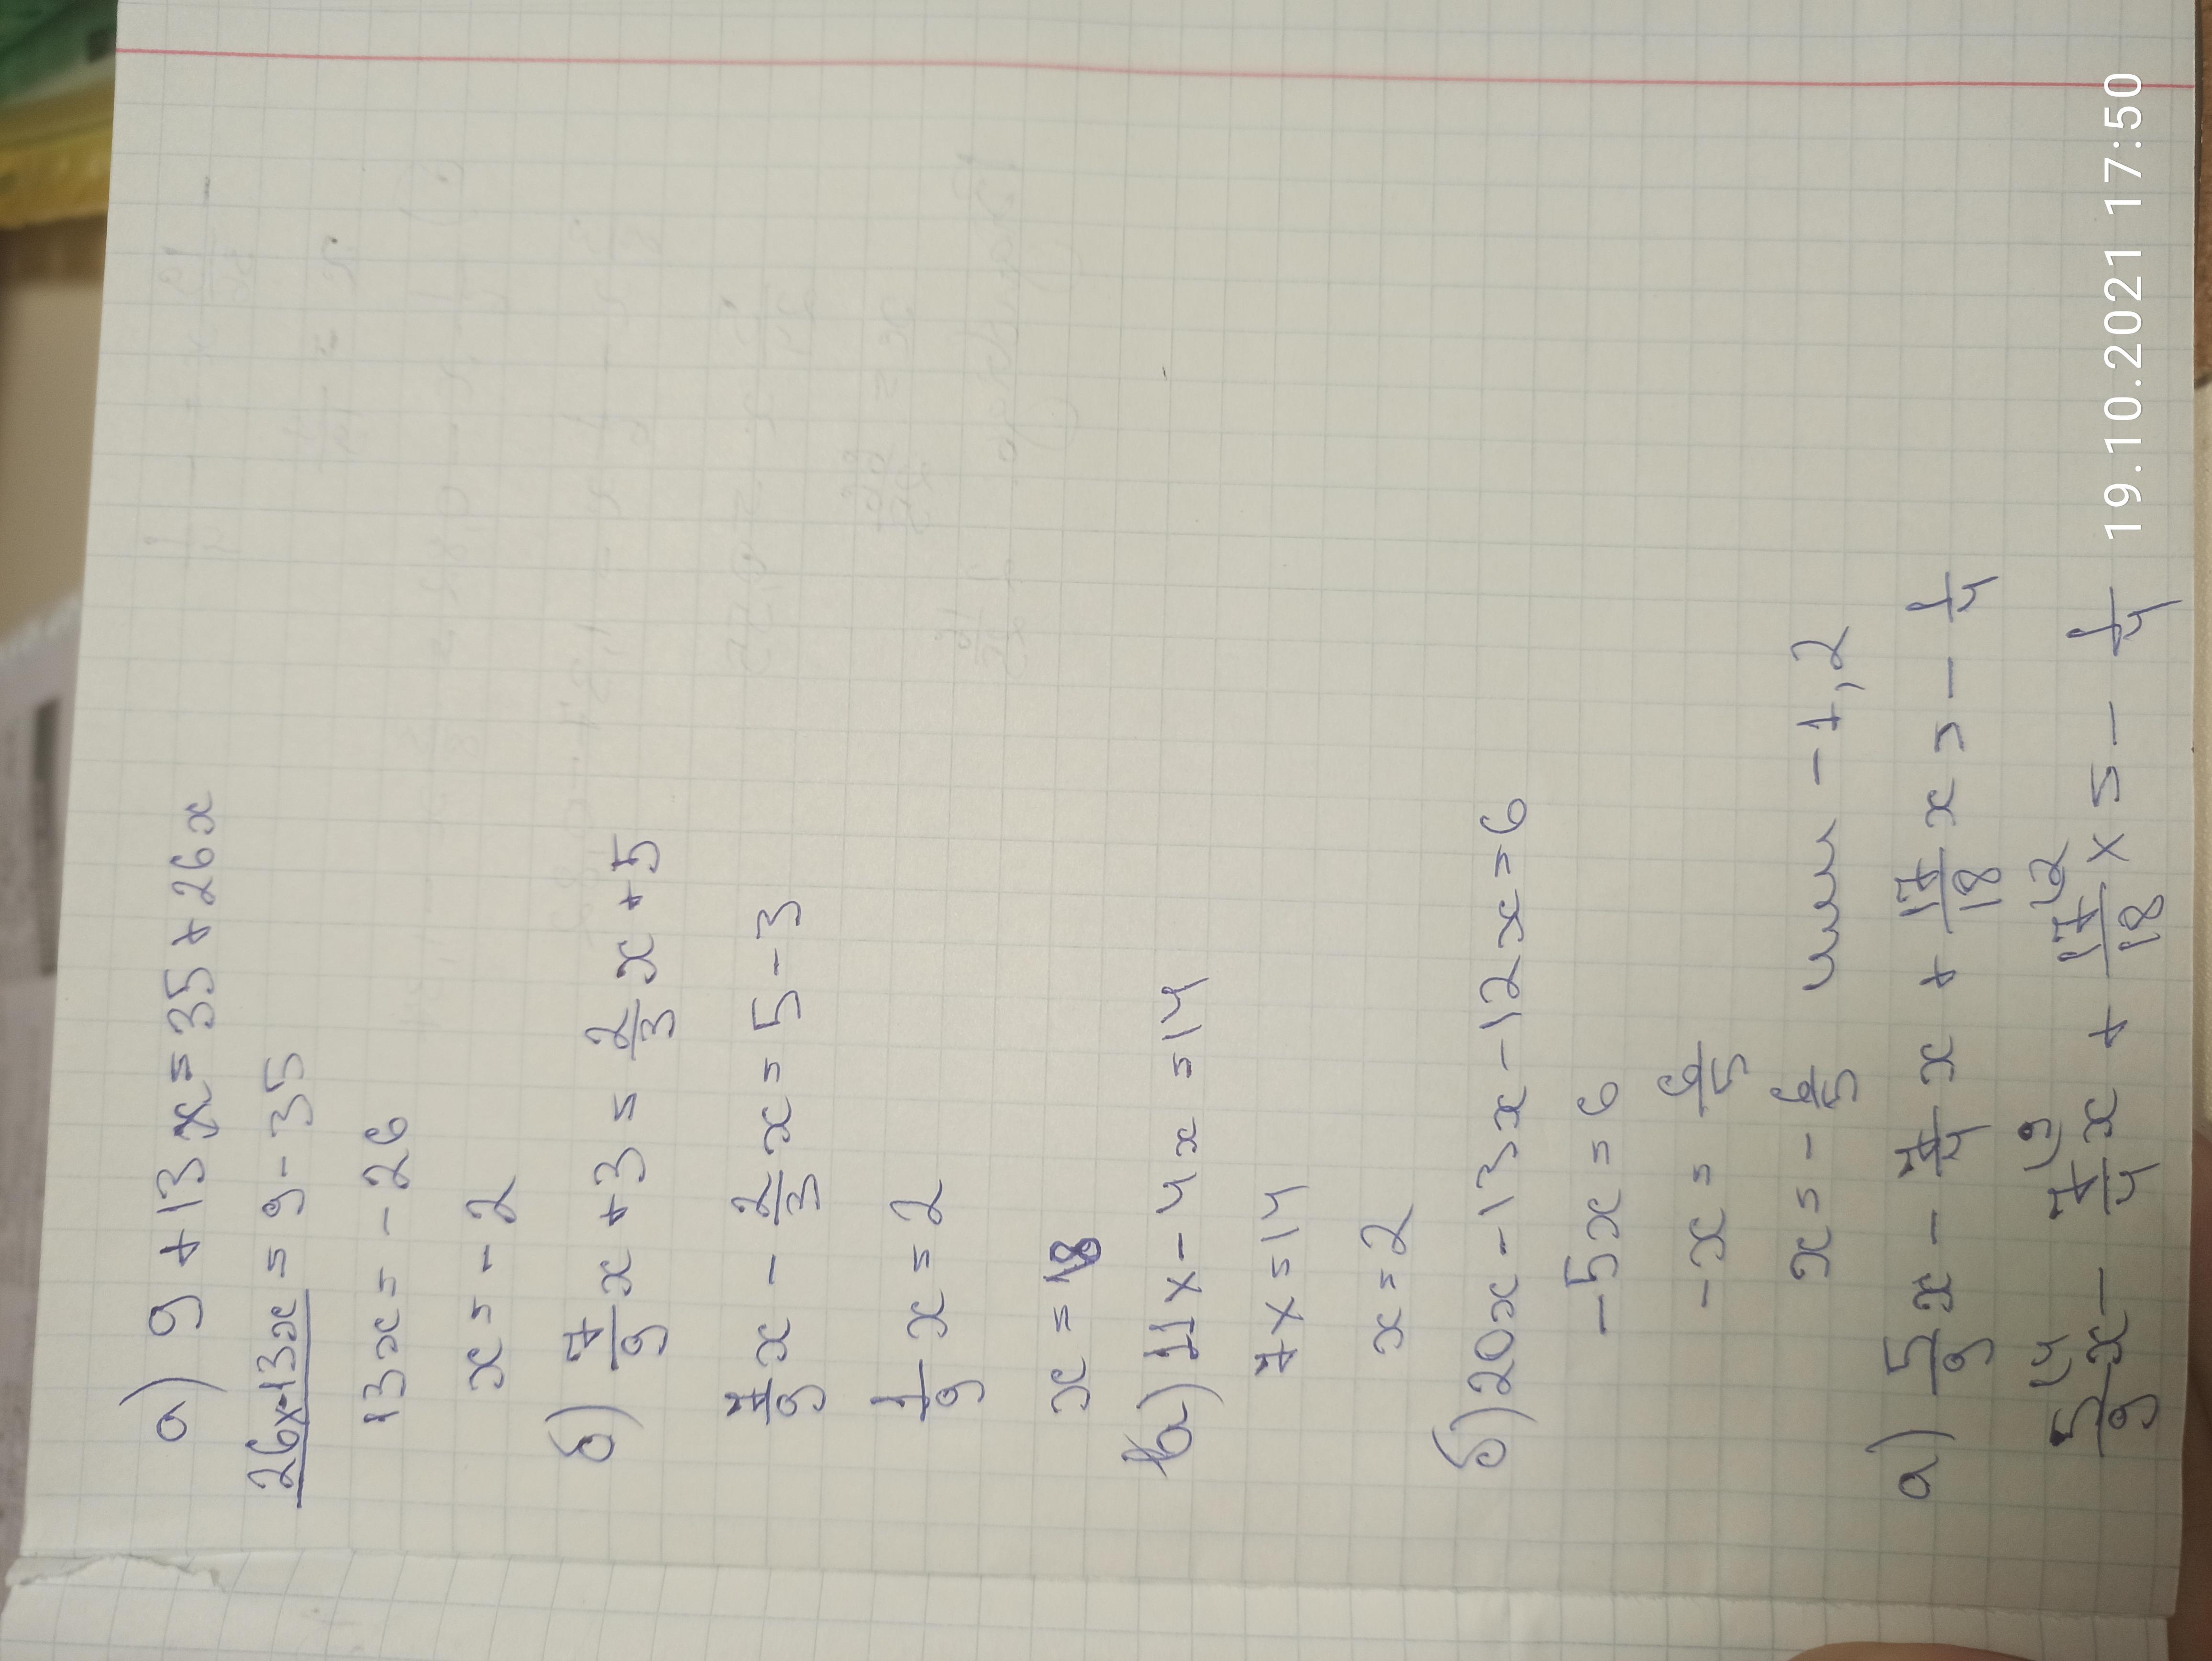 а) 9 + 13x = 35 + 26x
26x-13x = 9 - 35
13x = - 26
x = - 2
б) 7/9 x + 3 = 2/3 x + 5
7/9 x - 2/3 x = 5 - 3
1/9 x = 2
x = 18
а) 11x - 4x = 14
7x = 14
x = 2
б) 20x - 13x - 12x = 6
-5x = 6
-x = 6/5
x = - 6/5 или -1,2
а) 5/9 x - 7/4 x + 17/18 x = - 1/4
5/9 \4 x - 7/4 \9 x + 17/18 \2 x = - 1/4
19.10.2021 17:50